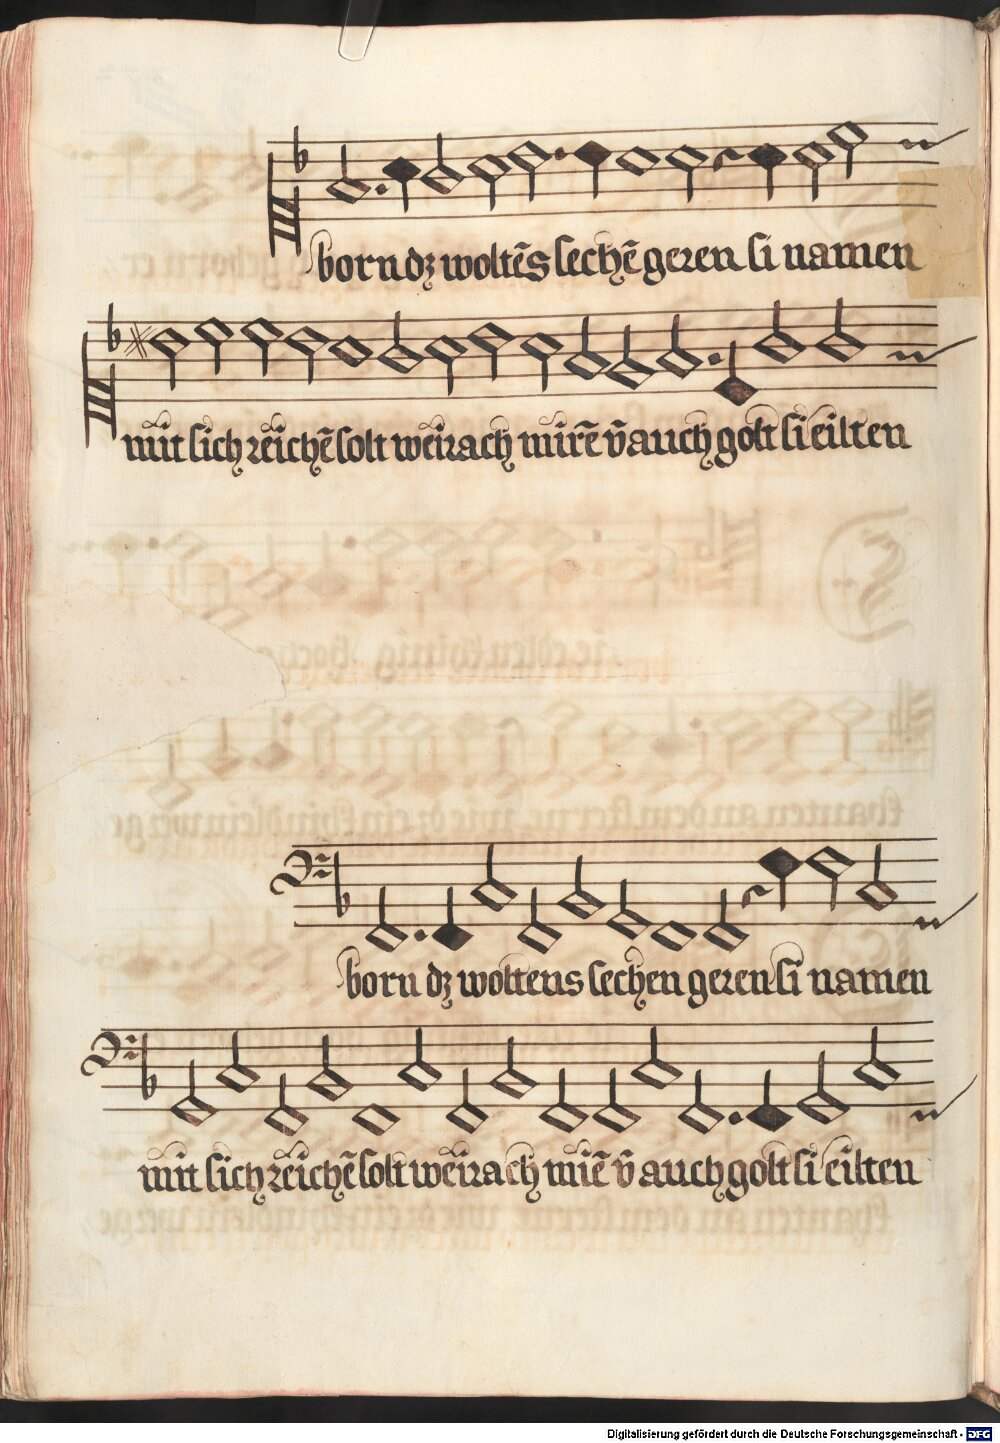 born dz woltēs sechē geren si namen
mit sich reichē solt weirach mirē v̄ auch golt si eilten
born dz woltens sechen geren si namen
mit sich reichē solt weirach mirē v̄ auch golt si eilten
Digitalisierung gefördert durch die Deutsche Forschungsgemeinschaft - DFG